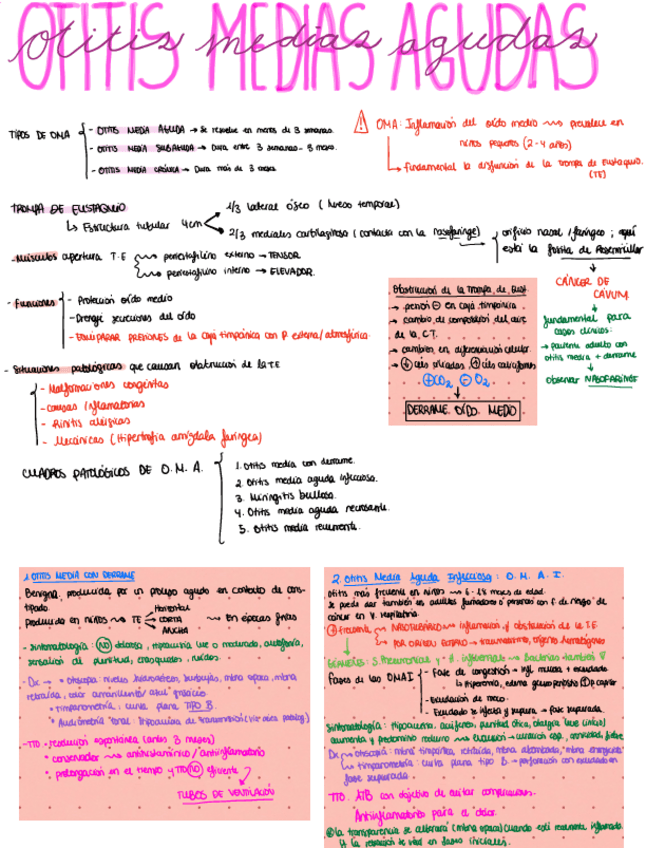 OTITIS MEDIAS AGUDAS
otitis medias agudas
TIPOS DE OMA
- OTITIS MEDIA AGUDA → Se resuelve en menos de 3 semanas.
- OTITIS MEDIA SUBAGUDA → Dura entre 3 semanas - 3 meses.
- OTITIS MEDIA CRÓNICA → Dura más de 3 meses.
OMA: Inflamación del oído medio → prevalece en
niños pequeños (2-4 años)
→ fundamental la disfunción de la trompa de eustaquio.
(TE)
TROMPA DE EUSTAQUIO
↳ Estructura tubular 4cm
1/3 lateral óseo (hueso temporal)
2/3 mediales cartilaginosa (contacta con la nasofaringe)
orificio nasal/faríngeo; aquí
está la fosita de Rosenmüller
CÁNCER DE
CÁVUM
fundamental para
casos clínicos:
→ paciente adulto con
otitis media + derrame
observar NASOFARINGE
- Músculos apertura T.E
periestafilino externo → TENSOR
periestafilino interno → ELEVADOR.
- Funciones
- Protección oído medio
- Drenaje secreciones del oído
- EQUIPARAR PRESIONES de la caja timpánica con P externa/atmosférica
Obstrucción de la Trompa de Eust.
→ presión ⊖ en caja timpánica
→ cambio de composición del aire
de la C.T.
→ cambios en diferenciación celular.
→ ⊕ cels ciliadas, ⊕ cels caliciformes
⊕CO2 ⊖O2
DERRAME OÍDO MEDIO
- Situaciones patológicas que causan obstrucción de la TE
- Malformaciones congénitas
- causas inflamatorias
- Rinitis alérgicas
- Mecánicas (Hipertrofia amígdala faríngea)
CUADROS PATOLÓGICOS DE O.M.A.
1. Otitis media con derrame.
2. Otitis media aguda infecciosa.
3. Miringitis bullosa.
4. Otitis media aguda necrosante.
5. Otitis media recurrente.
1. OTITIS MEDIA CON DERRAME
Benigna, producida por un proceso agudo en contexto de cons-
tipado.
Producida en niños → TE
Horizontal
CORTA
ANCHA
→ en épocas frías
- Sintomatología: NO dolorosa, hipoacusia leve o moderada, autofonía,
sensación de plenitud, chasquidos, ruidos.
- Dx → • otoscopia: niveles hidroaéreos, burbujas, mbna opaca, mbna
retraída, color amarillento/ azul grisáceo
• timpanometría: curva plana TIPO B.
• Audiometría tonal: hipoacusia de transmisión
- TTO → resolución espontánea (antes 3 meses)
• conservador → antihistamínico/antiinflamatorio
• prolongación en el tiempo y TTO NO eficiente
TUBOS DE VENTILACIÓN
2. Otitis Media Aguda Infecciosa: O.M.A.I.
Otitis más frecuente en niños → 6-18 meses de edad.
Se puede dar también en adultos fumadores o personas con f. de riesgo de
cáncer en V. respiratoria.
⊕ frecuente
NASOTUBÁRICO → inflamación y obstrucción de la T.E
POR OÍDO EXTERNO → traumatismo, origen hematógeno
GÉRMENES: S. Pneumoniae y H. influenzae → Bacterias también V
Fases de las OMAI
- Fase de congestión → infl. mucosa + exudado
- Exudación de moco.
- Exudado se infecta y supura → fase supurada.
Sintomatología: hipoacusia, acúfenos, plenitud ótica, otalgia
Dx → otoscopia: mbna timpánica, retraída, mbna abombada, mbna enrojecida
timpanometría: curva plana tipo B → perforación con exudado en
fase supurada
TTO: ATB con objetivo de evitar complicaciones.
Antiinflamatorios para el dolor.
la transparencia se alterará (mbna opaca) cuando esté realmente inflamada
y la retracción se verá en fases iniciales.